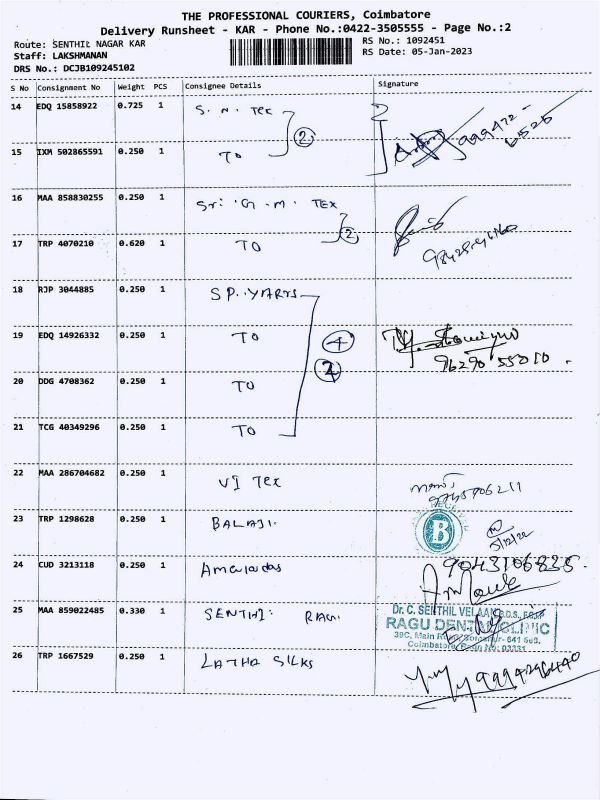 THE PROFESSIONAL COURIERS, Coimbatore
Delivery Runsheet - KAR - Phone No.:0422-3505555 - Page No.:2
Route: SENTHIL NAGAR KAR
RS No.: 1092451
Staff: LAKSHMANAN
RS Date: 05-Jan-2023
DRS No.: DCJB109245102
S No Consignment No Weight PCS Consignee Details Signature
14 EDQ 15858922 0.725 1 S. N. Tex
2
15 IXM 502865591 0.250 1 TO
16 MAA 858830255 0.250 1 Sri. G. M. TEX
2
17 TRP 4070210 0.620 1 TO
18 RJP 3044885 0.250 1 SP. YARTS
19 EDQ 14926332 0.250 1 TO
4
96290 55010
20 DDG 4708362 0.250 1 TO
21 TCG 40349296 0.250 1 TO
22 MAA 286704682 0.250 1 VJ Tex
23 TRP 1298628 0.250 1 BALAJI
B
24 CUD 3213118 0.250 1
9043106835
25 MAA 859022485 0.330 1 SENTHI RAGU
Dr. C. SENTHIL VELAAN B.D.S.,
RAGU DENTAL CLINIC
39C, Main Road,
Coimbatore
26 TRP 1667529 0.250 1 LATHA SILKS
9994296440